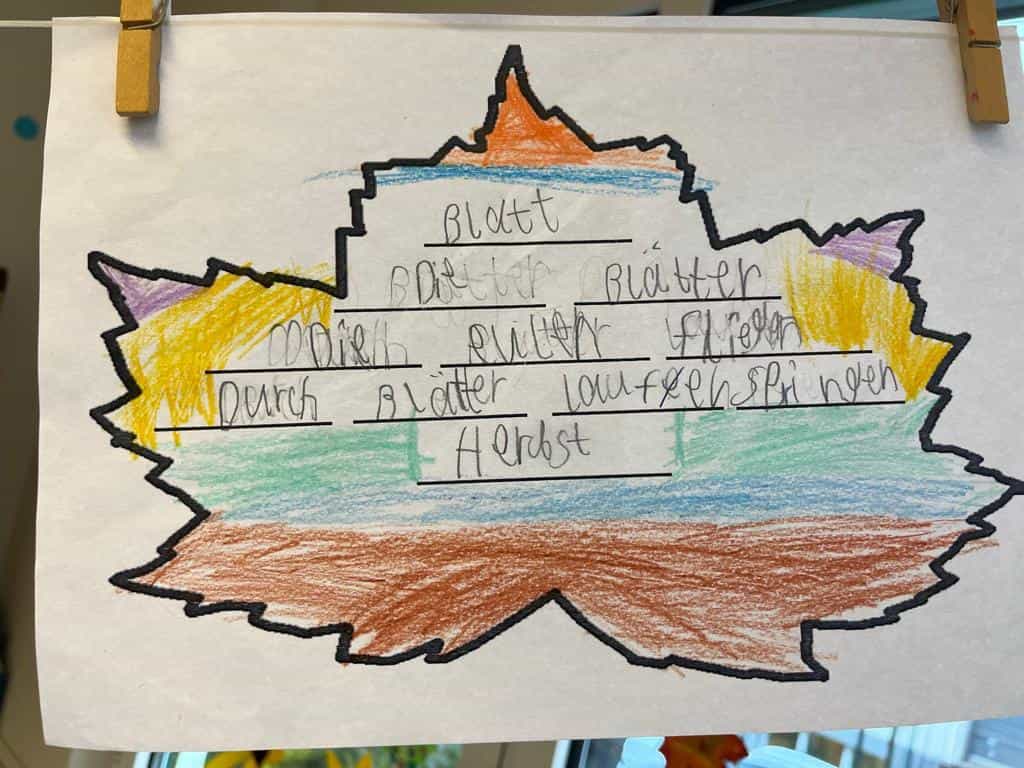 Blatt
Die Blätter
Die fliegen
Durch Blätter laufen springen
Herbst